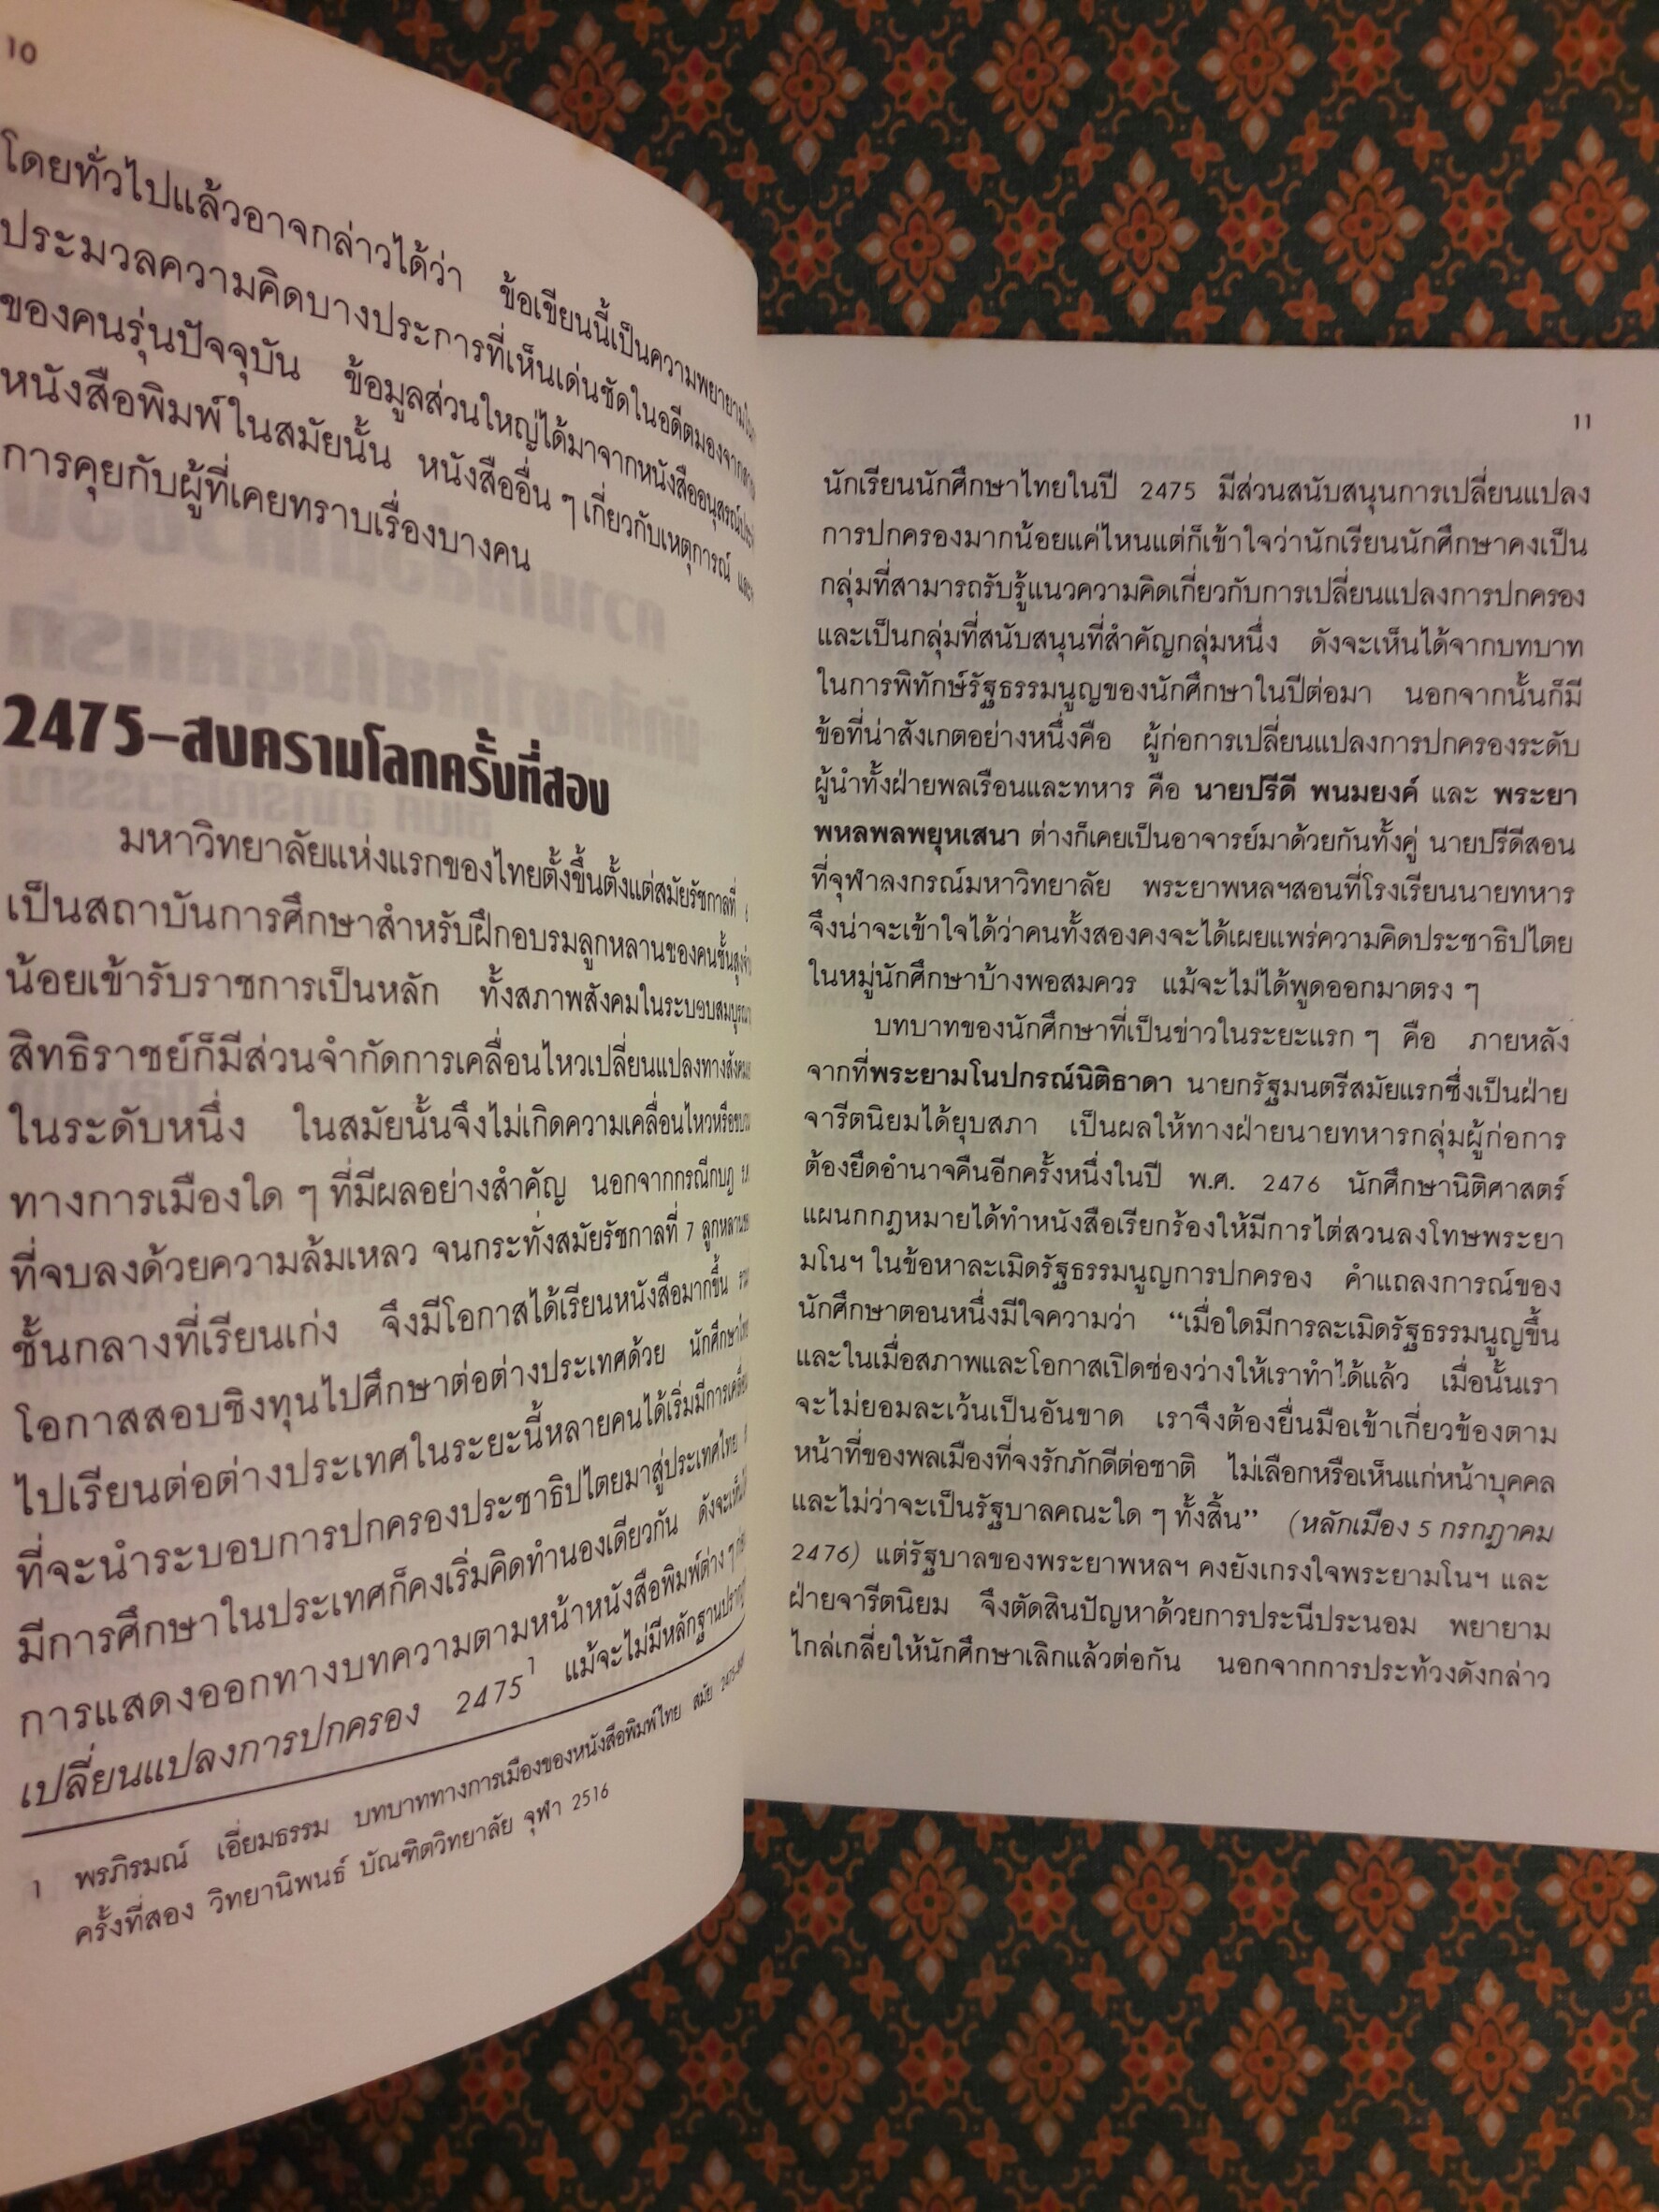 10
โดยทั่วไปแล้วอาจกล่าวได้ว่า ข้อเขียนนี้เป็นความพยายาม
ประมวลความคิดบางประการที่เห็นเด่นชัดในอดีตมองจาก
ของคนรุ่นปัจจุบัน ข้อมูลส่วนใหญ่ได้มาจากหนังสืออนุสรณ์
หนังสือพิมพ์ในสมัยนั้น หนังสืออื่น ๆ เกี่ยวกับเหตุการณ์ และ
การคุยกับผู้ที่เคยทราบเรื่องบางคน
2475–สงครามโลกครั้งที่สอง
มหาวิทยาลัยแห่งแรกของไทยตั้งขึ้นตั้งแต่สมัยรัชกาลที่ 6
เป็นสถาบันการศึกษาสำหรับฝึกอบรมลูกหลานของคนชั้นสูง
น้อยเข้ารับราชการเป็นหลัก ทั้งสภาพสังคมในระบอบสมบูรณา
สิทธิราชย์ก็มีส่วนจำกัดการเคลื่อนไหวเปลี่ยนแปลงทางสังคม
ในระดับหนึ่ง ในสมัยนั้นจึงไม่เกิดความเคลื่อนไหวหรือขบวน
ทางการเมืองใด ๆ ที่มีผลอย่างสำคัญ นอกจากกรณีกบฏ
ที่จบลงด้วยความล้มเหลว จนกระทั่งสมัยรัชกาลที่ 7 ลูกหลาน
ชั้นกลางที่เรียนเก่ง จึงมีโอกาสได้เรียนหนังสือมากขึ้น รวม
โอกาสสอบชิงทุนไปศึกษาต่อต่างประเทศด้วย นักศึกษา
ไปเรียนต่อต่างประเทศในระยะนี้หลายคนได้เริ่มมีการ
ที่จะนำระบอบการปกครองประชาธิปไตยมาสู่ประเทศไทย
มีการศึกษาในประเทศก็คงเริ่มคิดทำนองเดียวกัน ดังจะเห็น
การแสดงออกทางบทความตามหน้าหนังสือพิมพ์ต่าง ๆ
เปลี่ยนแปลงการปกครอง 2475¹ แม้จะไม่มีหลักฐาน
1 พรภิรมณ์ เอี่ยมธรรม บทบาททางการเมืองของหนังสือพิมพ์ไทย สมัย 2475
ครั้งที่สอง วิทยานิพนธ์ บัณฑิตวิทยาลัย จุฬา 2516
11
นักเรียนนักศึกษาไทยในปี 2475 มีส่วนสนับสนุนการเปลี่ยนแปลง
การปกครองมากน้อยแค่ไหนแต่ก็เข้าใจว่านักเรียนนักศึกษาคงเป็น
กลุ่มที่สามารถรับรู้แนวความคิดเกี่ยวกับการเปลี่ยนแปลงการปกครอง
และเป็นกลุ่มที่สนับสนุนที่สำคัญกลุ่มหนึ่ง ดังจะเห็นได้จากบทบาท
ในการพิทักษ์รัฐธรรมนูญของนักศึกษาในปีต่อมา นอกจากนั้นก็มี
ข้อที่น่าสังเกตอย่างหนึ่งคือ ผู้ก่อการเปลี่ยนแปลงการปกครองระดับ
ผู้นำทั้งฝ่ายพลเรือนและทหาร คือ นายปรีดี พนมยงค์ และ พระยา
พหลพลพยุหเสนา ต่างก็เคยเป็นอาจารย์มาด้วยกันทั้งคู่ นายปรีดีสอน
ที่จุฬาลงกรณ์มหาวิทยาลัย พระยาพหลฯสอนที่โรงเรียนนายทหาร
จึงน่าจะเข้าใจได้ว่าคนทั้งสองคงจะได้เผยแพร่ความคิดประชาธิปไตย
ในหมู่นักศึกษาบ้างพอสมควร แม้จะไม่ได้พูดออกมาตรง ๆ
บทบาทของนักศึกษาที่เป็นข่าวในระยะแรก ๆ คือ ภายหลัง
จากที่พระยามโนปกรณ์นิติธาดา นายกรัฐมนตรีสมัยแรกซึ่งเป็นฝ่าย
จารีตนิยมได้ยุบสภา เป็นผลให้ทางฝ่ายนายทหารกลุ่มผู้ก่อการ
ต้องยึดอำนาจคืนอีกครั้งหนึ่งในปี พ.ศ. 2476 นักศึกษานิติศาสตร์
แผนกกฎหมายได้ทำหนังสือเรียกร้องให้มีการไต่สวนลงโทษพระยา
มโนฯ ในข้อหาละเมิดรัฐธรรมนูญการปกครอง คำแถลงการณ์ของ
นักศึกษาตอนหนึ่งมีใจความว่า “เมื่อใดมีการละเมิดรัฐธรรมนูญขึ้น
และในเมื่อสภาพและโอกาสเปิดช่องว่างให้เราทำได้แล้ว เมื่อนั้นเรา
จะไม่ยอมละเว้นเป็นอันขาด เราจึงต้องยื่นมือเข้าเกี่ยวข้องตาม
หน้าที่ของพลเมืองที่จงรักภักดีต่อชาติ ไม่เลือกหรือเห็นแก่หน้าบุคคล
และไม่ว่าจะเป็นรัฐบาลคณะใด ๆ ทั้งสิ้น” (หลักเมือง 5 กรกฎาคม
2476) แต่รัฐบาลของพระยาพหลฯ คงยังเกรงใจพระยามโนฯ และ
ฝ่ายจารีตนิยม จึงตัดสินปัญหาด้วยการประนีประนอม พยายาม
ไกล่เกลี่ยให้นักศึกษาเลิกแล้วต่อกัน นอกจากการประท้วงดังกล่าว